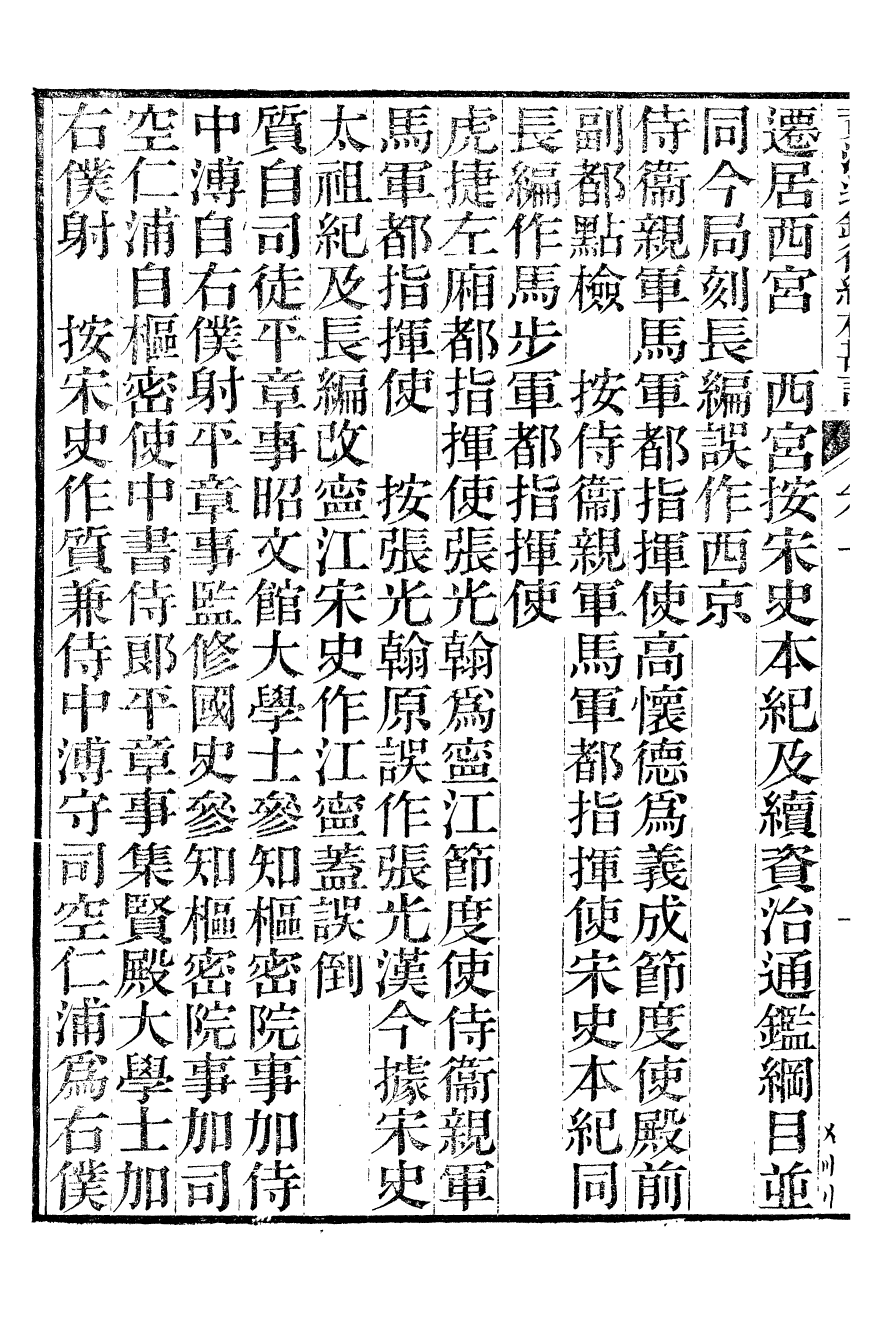 遷居西宮　西宮按宋史本紀及續資治通鑑綱目並
同今局刻長編誤作西京
侍衞親軍馬軍都指揮使高懷德爲義成節度使殿前
副都點檢　按侍衞親軍馬軍都指揮使宋史本紀同
長編作馬步軍都指揮使
虎捷左廂都指揮使張光翰爲寍江節度使侍衞親軍
馬軍都指揮使　按張光翰原誤作張光漢今據宋史
太祖紀及長編改寍江宋史作江寍蓋誤倒
質自司徒平章事昭文館大學士參知樞密院事加侍
中溥自右僕射平章事監修國史參知樞密院事加司
空仁浦自樞密使中書侍郞平章事集賢殿大學士加
右僕射　按宋史作質兼侍中溥守司空仁浦爲右僕